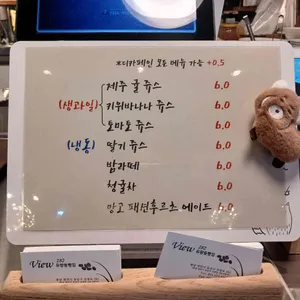 ※디카페인 모든 메뉴 가능 +0.5
(생과일)
제주 귤 쥬스 6.0
키위바나나 쥬스 6.0
토마토 쥬스 6.0
(냉동) 딸기 쥬스 6.0
밤라떼 6.0
청귤차 6.0
망고 패션후르츠 에이드 6.0
View 182
View 182